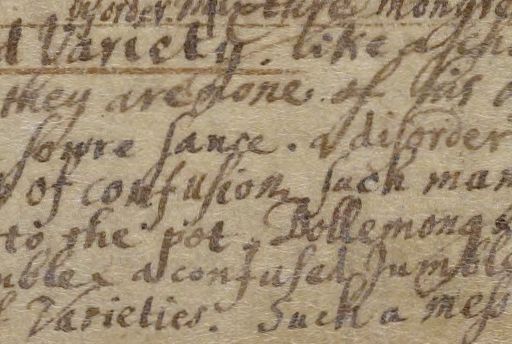 disorder mixture mongre
d Variety. like a
they are gone. of his
sowre sauce. a disorder
of confusion such man
to the pot. Bollemong
a confused Jumble
Varieties. Such a mess